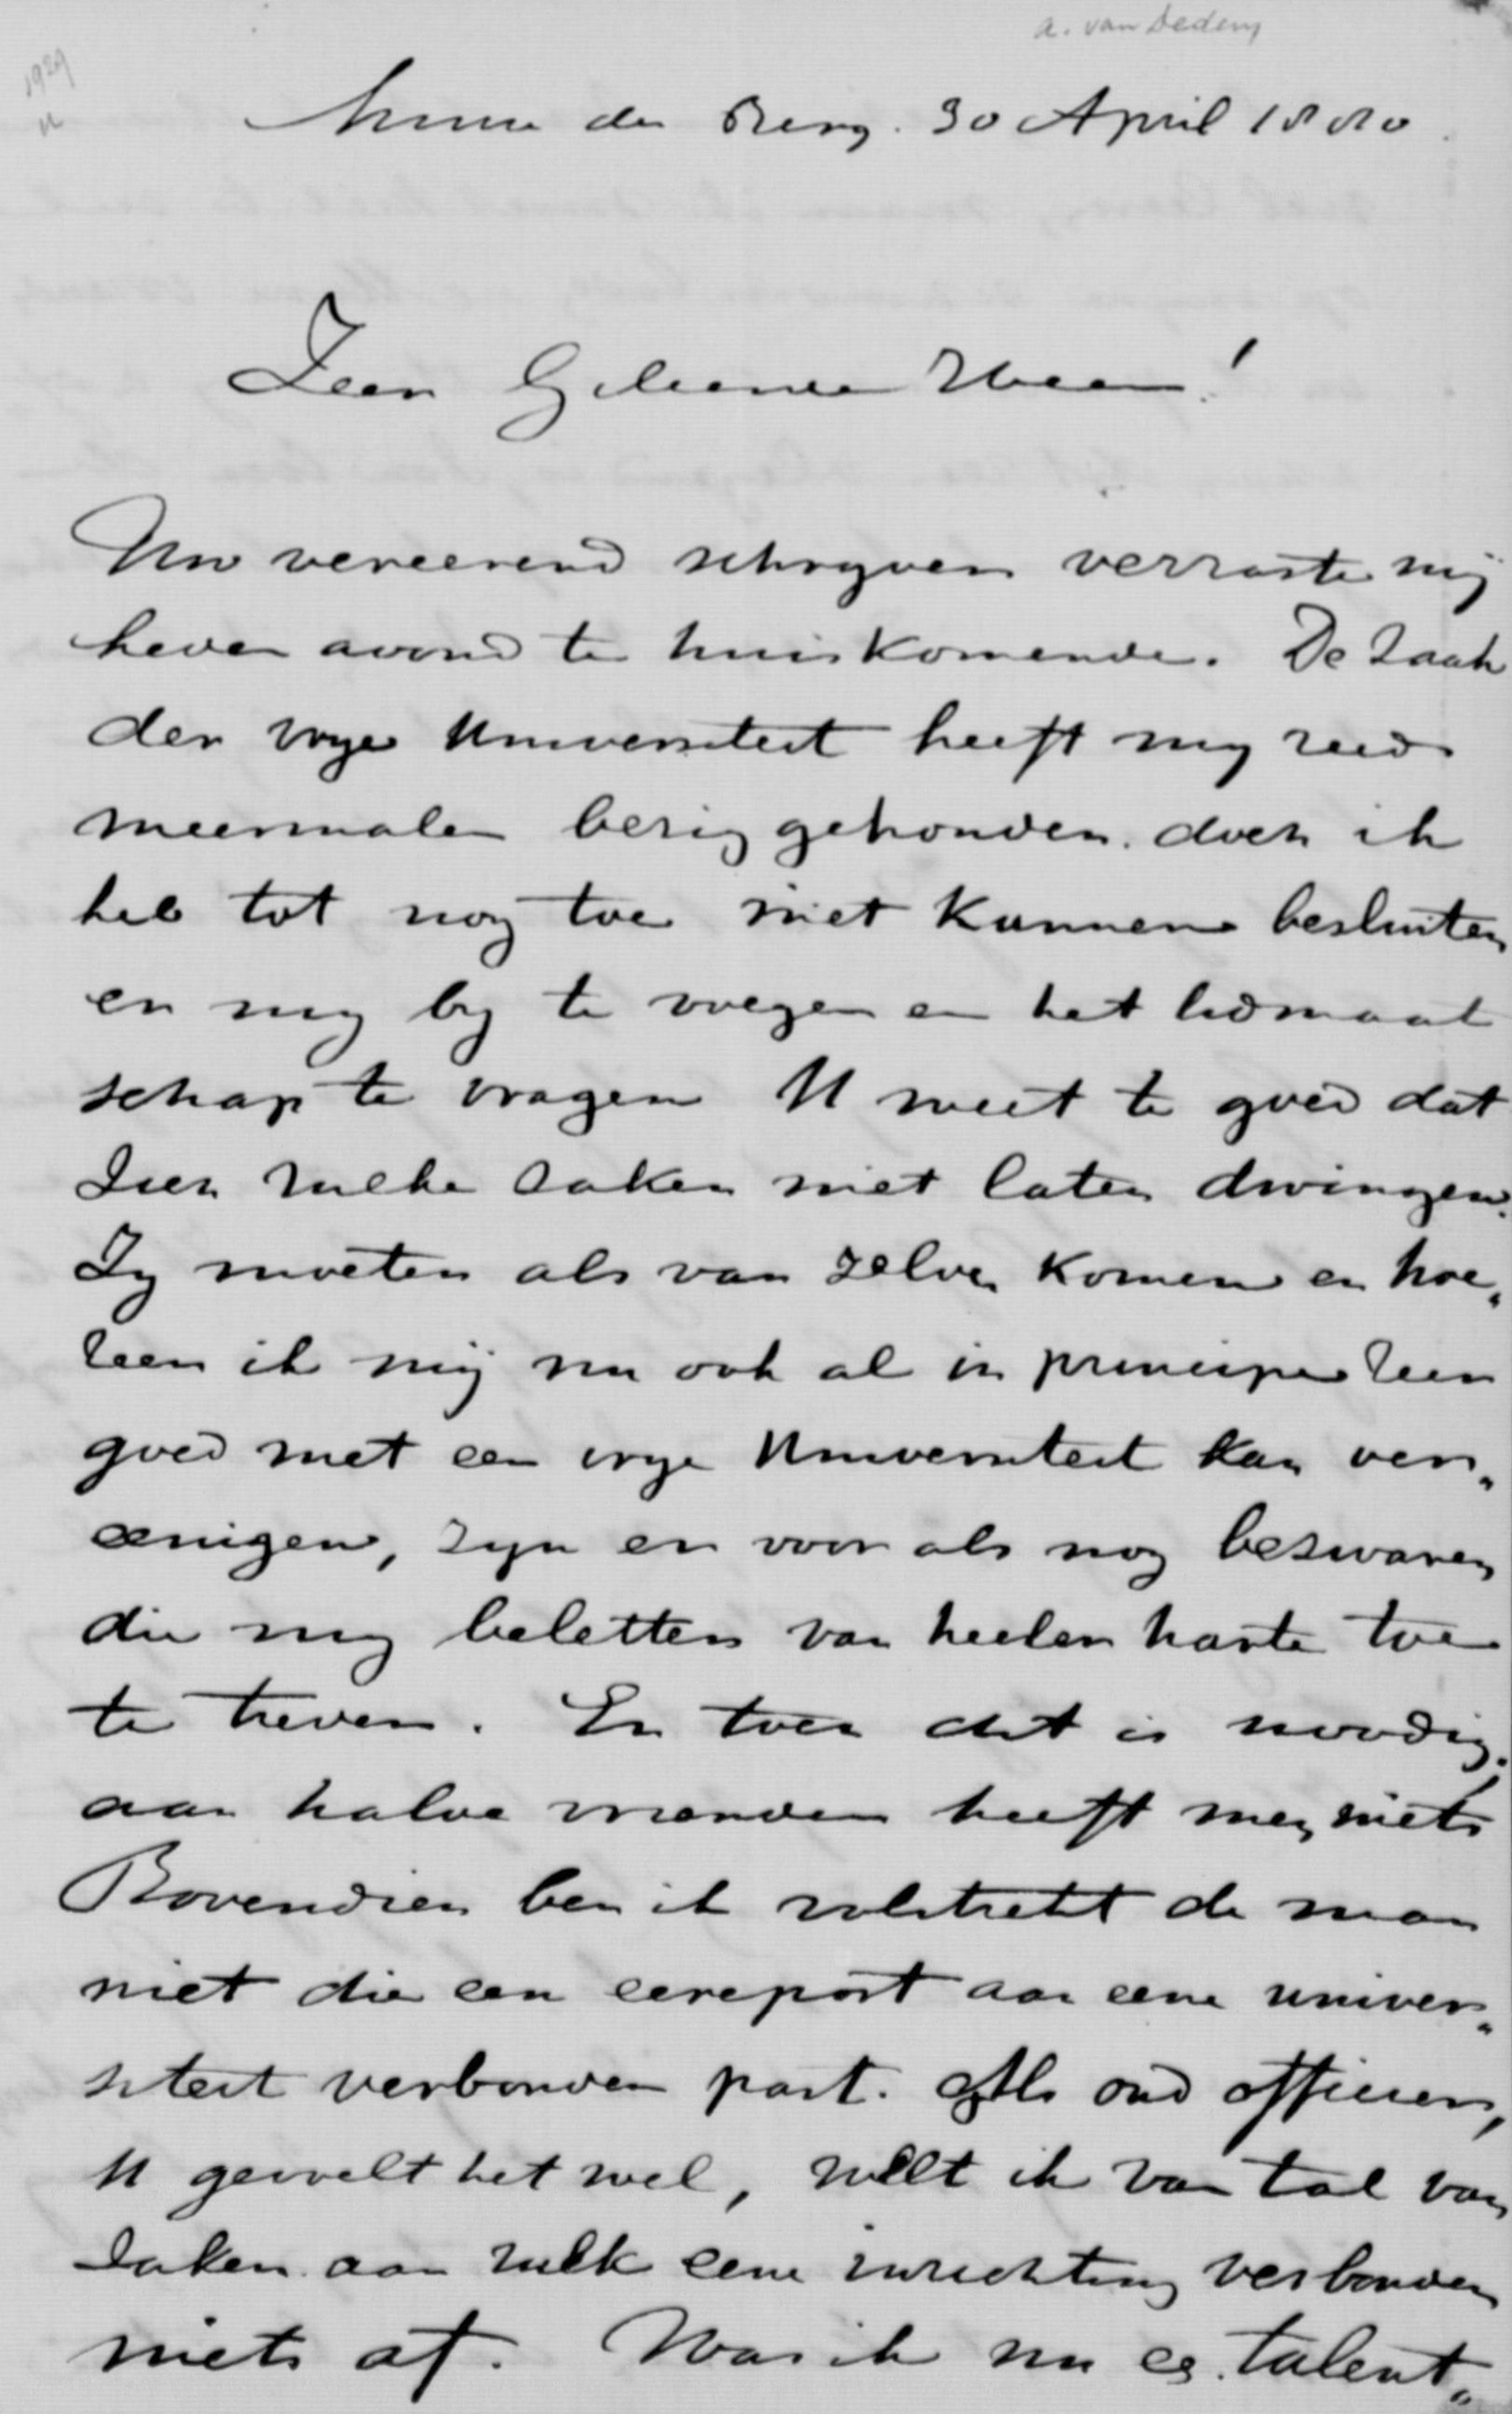 a. van Dedem
1929
Huize den Berg. 30 April 1880.
Zeer Geleerde Heer!
Uw vereerend schryven verraste mij
heden avond te huis komende. De zaak
der vrye Universiteit heeft my reeds
meermalen bezig gehouden. doch ik
heb tot nog toe niet kunnen besluiten
er my by te voegen en het lidmaat
schap te vragen U weet te goed dat
zich zulke zaken niet laten dwingen.
Zy moeten als van zelve komen en hoe„
zeer ik mij nu ook al in principe zeer
goed met een vrye Universiteit kan ver„
eenigen, zyn er voor als nog bezwaren
die my beletten van heeler harte toe
te treden. En toch dit is noodig.
aan halve vrienden heeft men niets
Bovendien ben ik volstrekt de man
niet die een eerepost aan eene univer„
siteit verbonden past. Als oud officier,
U gevoelt het wel, weet ik van tal van
zaken aan zulk eene inrichting verbonden
niets af. Was ik nu eg. talent„